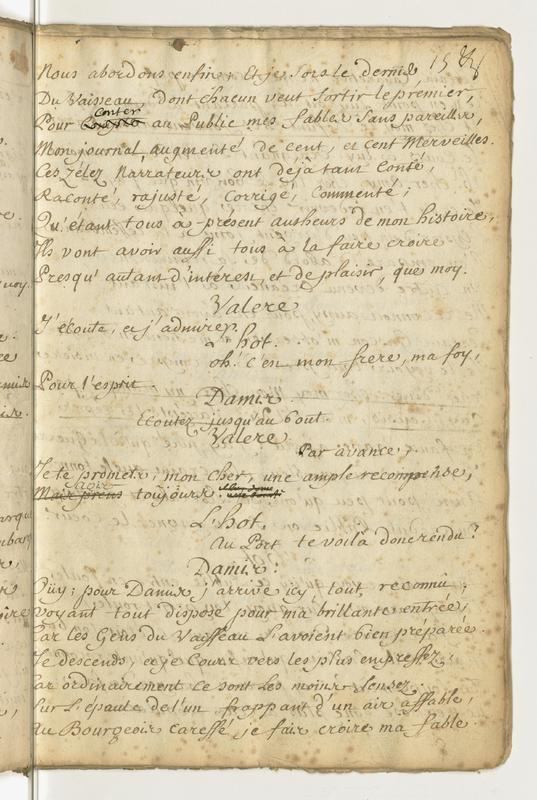 15
Nous abordons enfin, et je sors le dernier
Du Vaisseau, dont chacun veut sortir le premier,
Conter
Pour au Public mes fables sans pareilles,
Mon journal augmenté de cent, et cent Merveilles.
Ces Zélez Narrateurs ont déja tant Conté,
Raconté, rajusté, Corrigé, Commenté;
Qu'étant tous a présent autheurs de mon histoire,
Ils vont avoir aussi tous à la faire croire
Presqu'autant d'interest, et de plaisir, que moy.
Valere
J'écoute, et j'admire.
L'hot.
oh! c'en mon frere, ma foy,
Pour l'esprit.
Damis
Ecoutez jusqu'au bout.
Valere
Par avance,
Je te promets, mon cher, une ample recompense,
Mais prens toujours.
L'hot.
Au Port te voila donc rendu?
Damis.
Oüy; pour Damis j'arrive icy, tout, reconnu;
Voyant tout disposé pour ma brillante entrée,
Car les Gens du Vaisseau L'avoient bien préparée
Je descends, et je Cours vers les plus empressez,
Car ordinairement ce sont les moins sensez.
Sur L'épaule de l'un frappant d'un air affable,
Au Bourgeois caressé je fais croire ma fable.